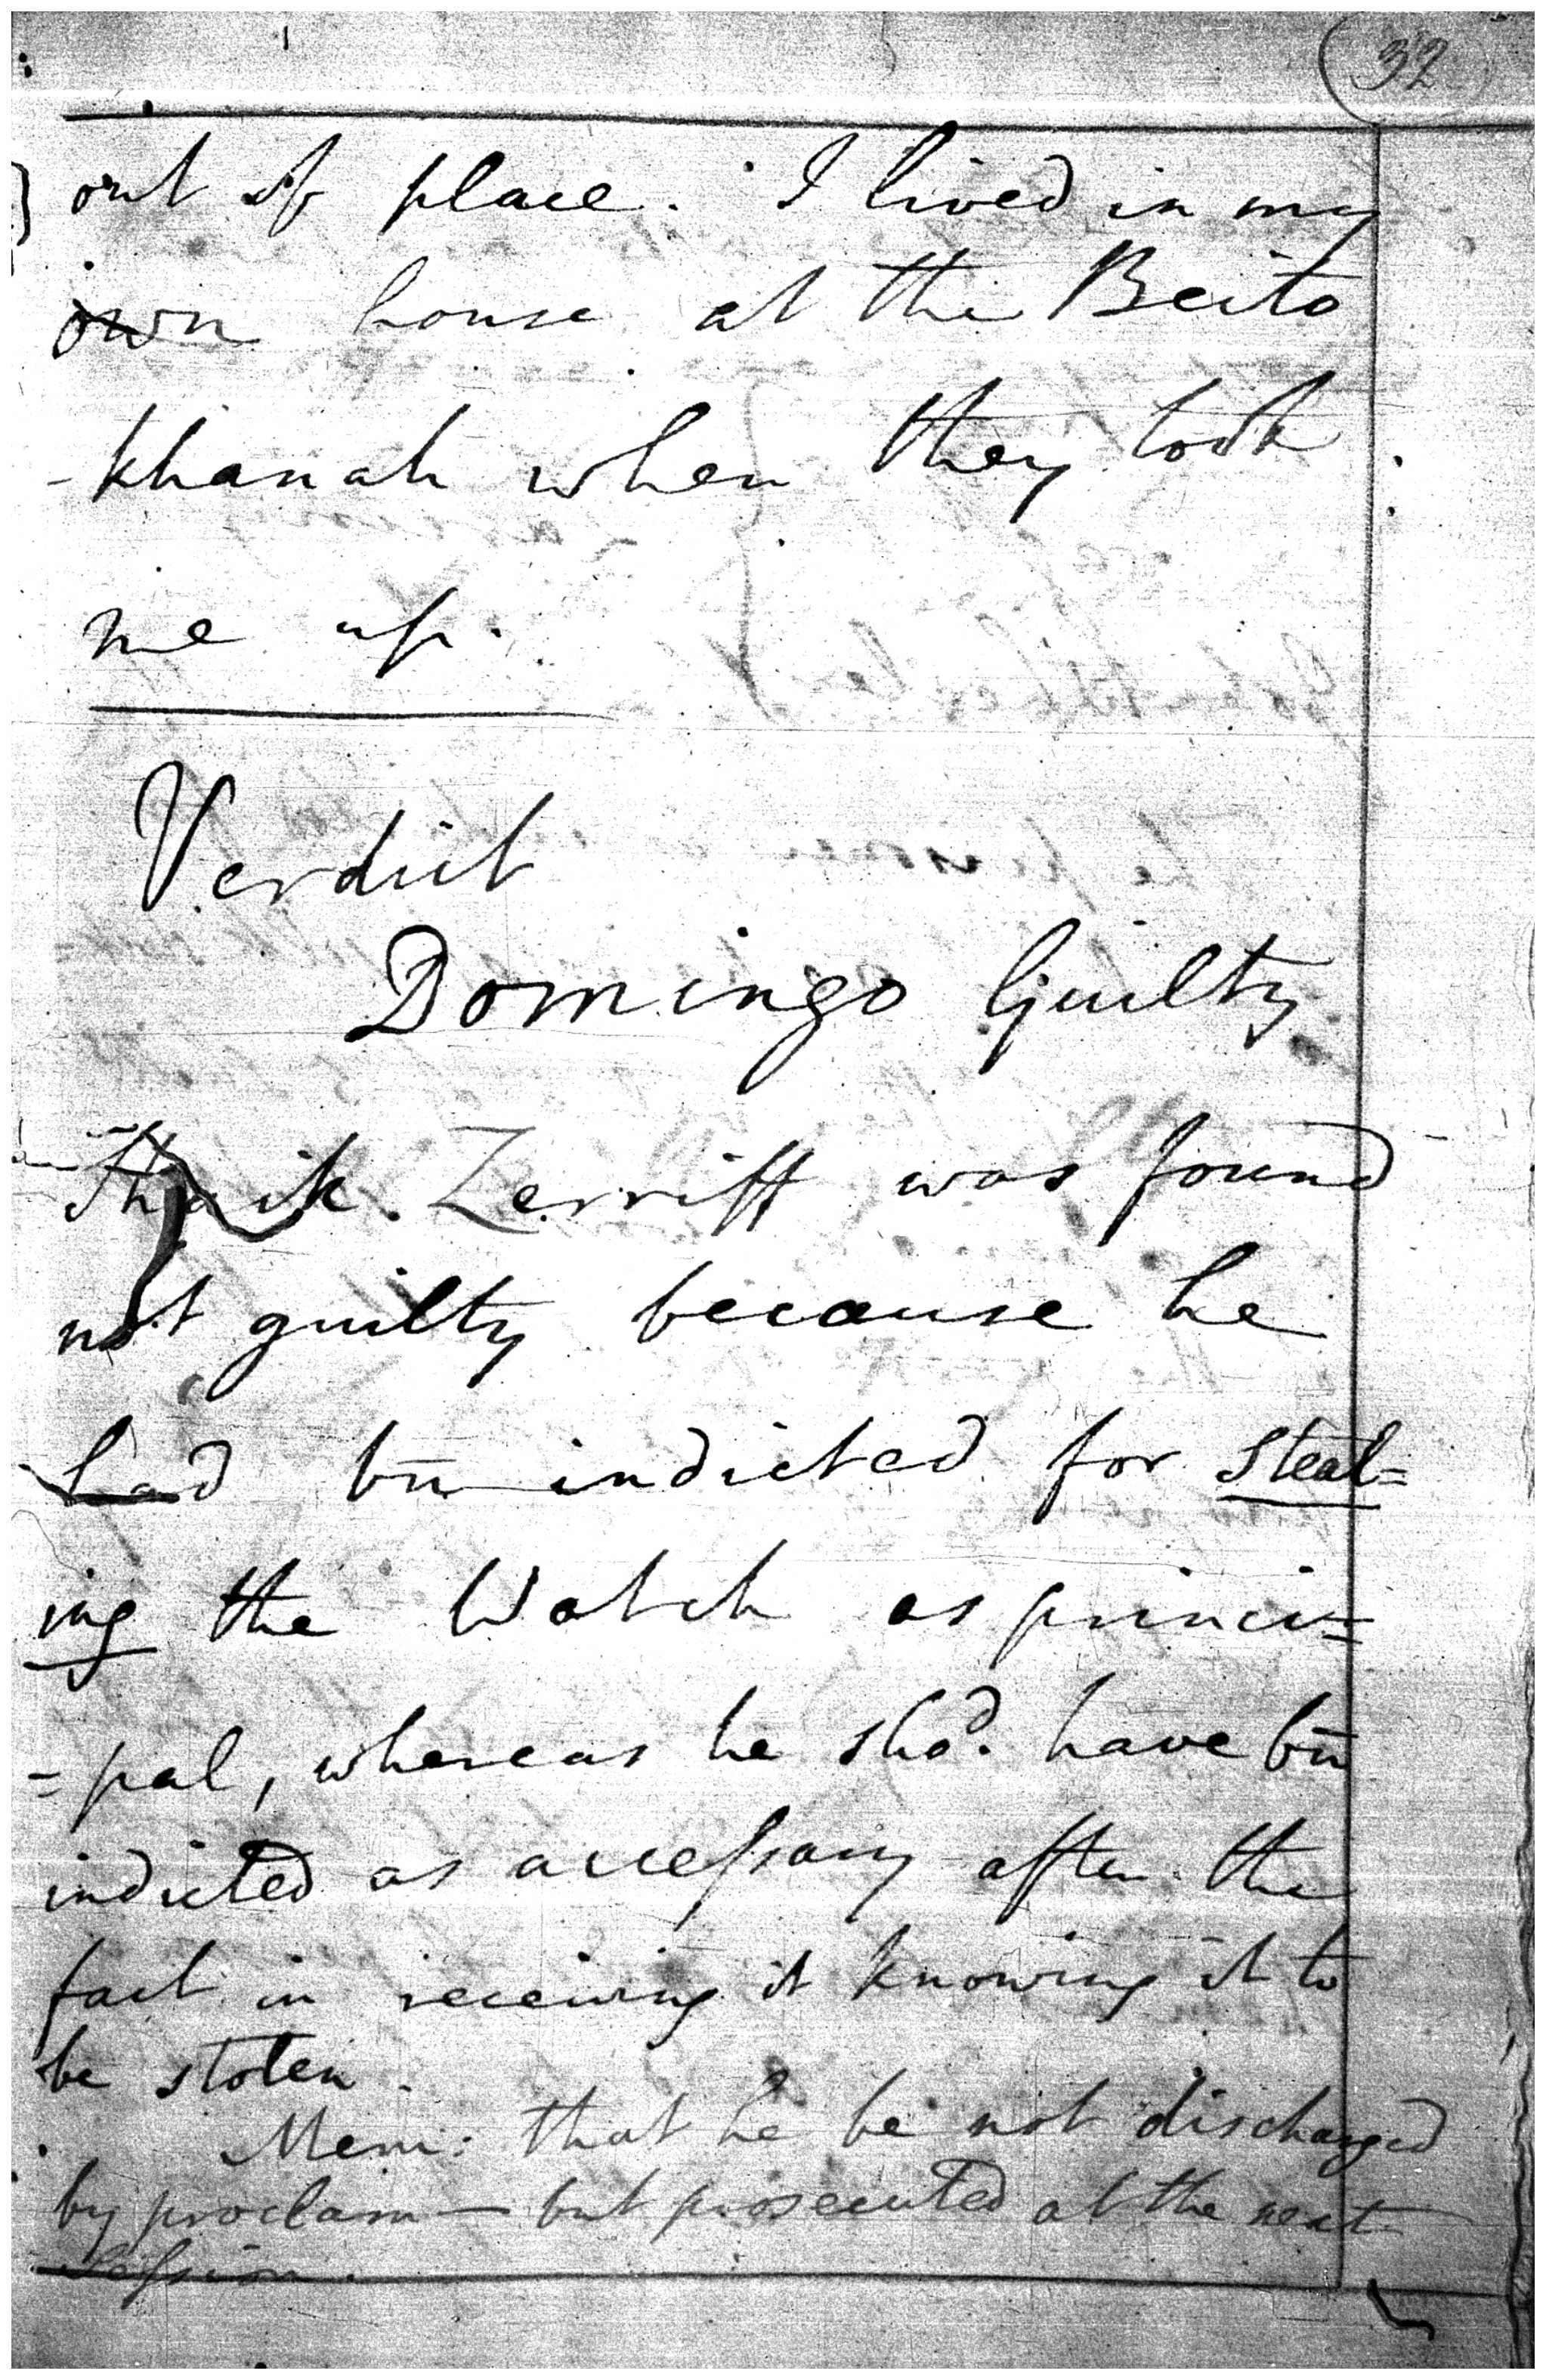 32
out of place. I lived in my
own house at the Beito
-khanah when they took
me up.
Verdict
Domingo Guilty
Shaik Zerriff was found
not guilty because he
had bn indicted for Steal=
ing the Watch as princi=
=pal, whereas he shod. have bn
indicted as accessary after the
fact in receiving it knowing it to
be stolen.
Mem: that he be not discharged
by proclam— but prosecuted at the next
Session.